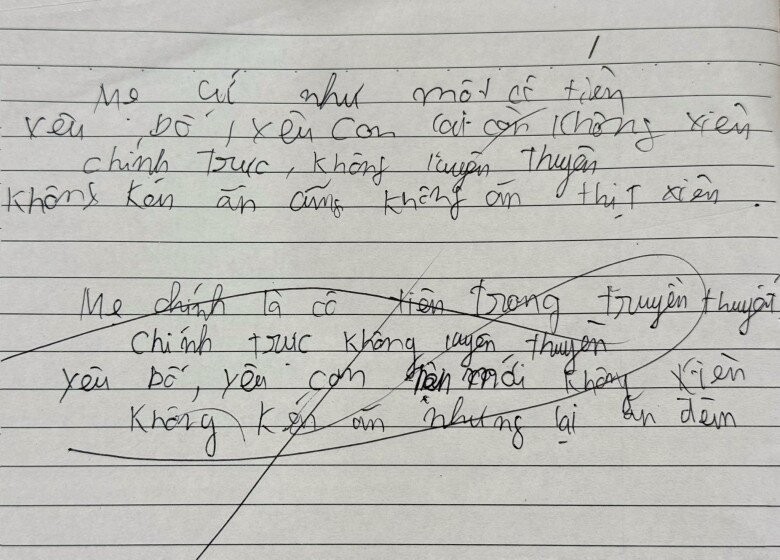 1
Mẹ cứ như một cô tiên
Yêu bố, yêu con lại còn không xiên
chính trực, không luyên thuyên
không kén ăn cũng không ăn thịt xiên.
Mẹ chính là cô tiên trong truyền thuyết
Chính trực không luyên thuyên
yêu bố, yêu con mới không xiên
không kén ăn nhưng lại ăn đêm